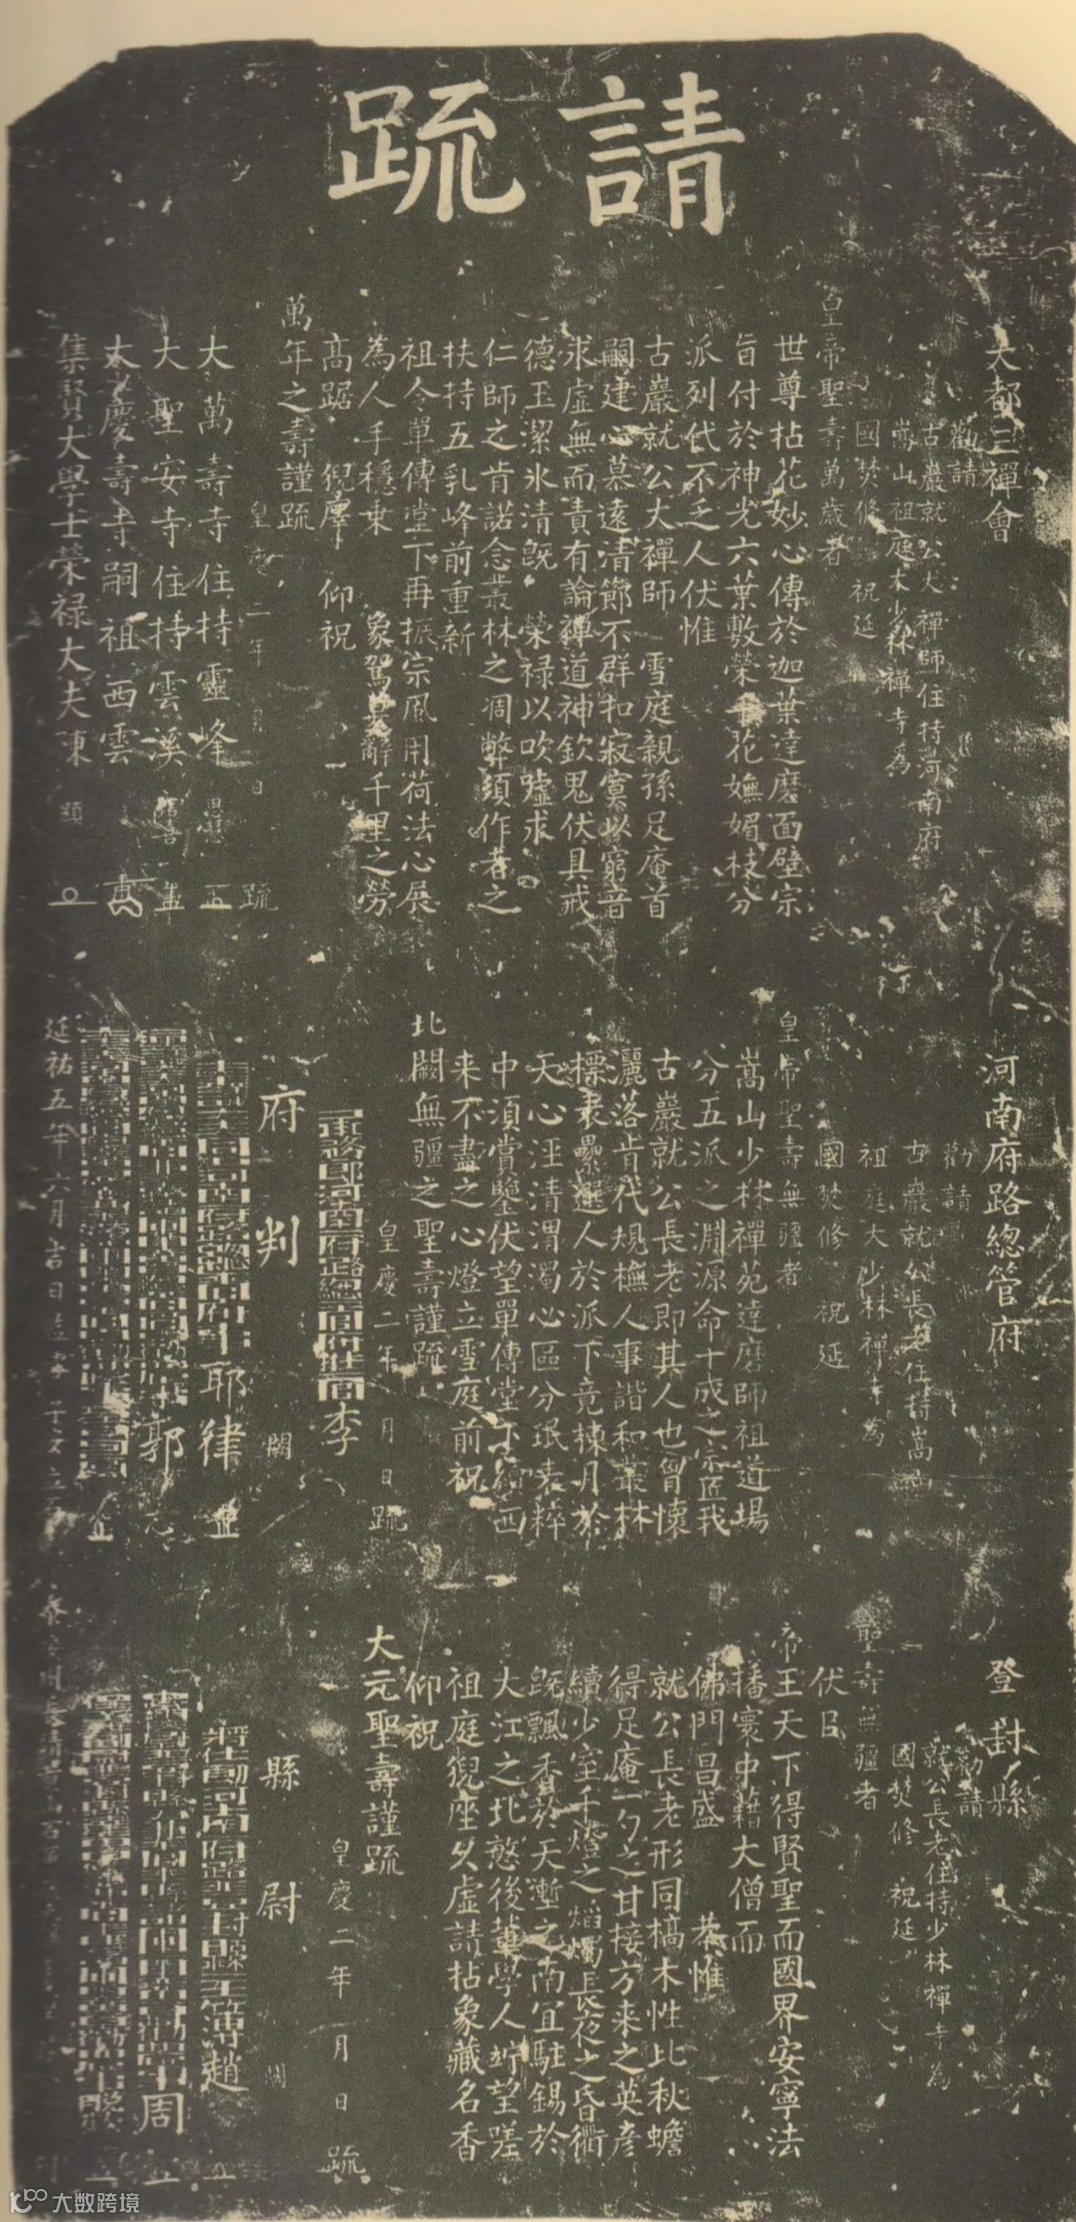 請疏
大都三禪會
勸請
古巖就公大禪師住持河南府
嵩山祖庭大少林禪寺為
國焚修祝延
皇帝聖壽萬歲者
世尊拈花妙心傳於迦葉達磨面壁宗
旨付於神光六葉敷榮千花嫵媚枝分
派列代不乏人伏惟
古巖就公大禪師雪庭親孫足庵首
嗣建心慕遠清節不群扣寂寞以窮音
求虛無而責有論禪道神欽鬼伏具戒
德玉潔氷清既榮禄以吹噓求
仁師之肯諾念叢林之凋弊須作者之
扶持五乳峰前重新
祖令單傳堂下再振宗風用荷法心展
為人手穩乘象駕莫辭千里之勞
高踞猊座仰祝
萬年之壽謹疏
皇慶二年月日疏
大萬壽寺住持靈峰
大聖安寺住持雲溪
大慶壽寺嗣祖西雲
集賢大學士榮禄大夫陳顥
河南府路總管府
勸請
古巖就公長老住持嵩山
祖庭大少林禪寺為
國焚修祝延
皇帝聖壽無疆者
嵩山少林禪苑達磨師祖道場
分五派之淵源命十成之宗匠我
古巖就公長老即其人也曾懷
灑落肯代規橅人事諧和叢林
標表纍選人於派下竟楝月於
天心涇清渭濁必區分珉表粹
中須賞鑒伏望單傳堂下續西
来不盡之心燈立雪庭前祝
北闕無疆之聖壽謹疏
皇慶二年月日疏
李
府判闕
耶律
郭
延祐五年六月吉日
登封縣
勸請
就公長老住持少林禪寺為
國焚修祝延
聖壽無疆者
伏㠯
帝王天下得賢聖而國界安寧法
播寰中藉大僧而
佛門昌盛恭惟
就公長老形同槁木性比秋蟾
得足庵一勺之甘接方来之英彥
續少室千燈之焰燭長夜之昏衢
既飄香於天塹之南宜駐錫於
大江之北慜後輩學人竚望嗟
祖庭猊座久虛請拈象藏名香
仰祝
大元聖壽謹疏
皇慶二年一月日疏
縣尉闕
趙
周
大数跨境